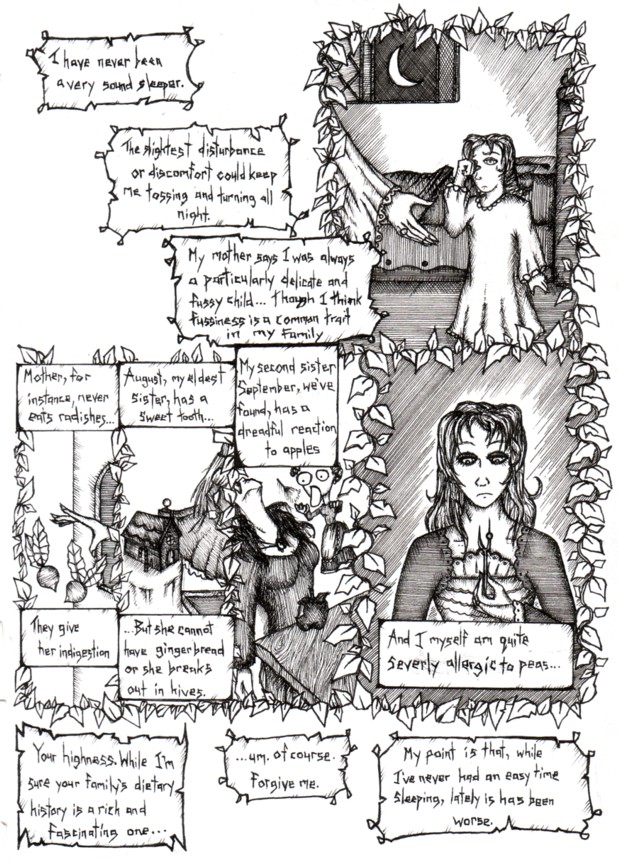 I have never been
a very sound sleeper.
The slightest disturbance
or discomfort could keep
me tossing and turning all
night.
My mother says I was always
a particularly delicate and
fussy child... Though I think
fussiness is a common trait
in my family
Mother, for
instance, never
eats radishes...
They give
her indigestion
August, my eldest
sister, has a
sweet tooth...
...But she cannot
have gingerbread
or she breaks
out in hives.
My second sister
September, we've
found, has a
dreadful reaction
to apples
And I myself am quite
severly allergic to peas...
Your highness. While I'm
sure your family's dietary
history is a rich and
fascinating one...
...um. of course.
Forgive me.
My point is that, while
I've never had an easy time
sleeping, lately is has been
worse.